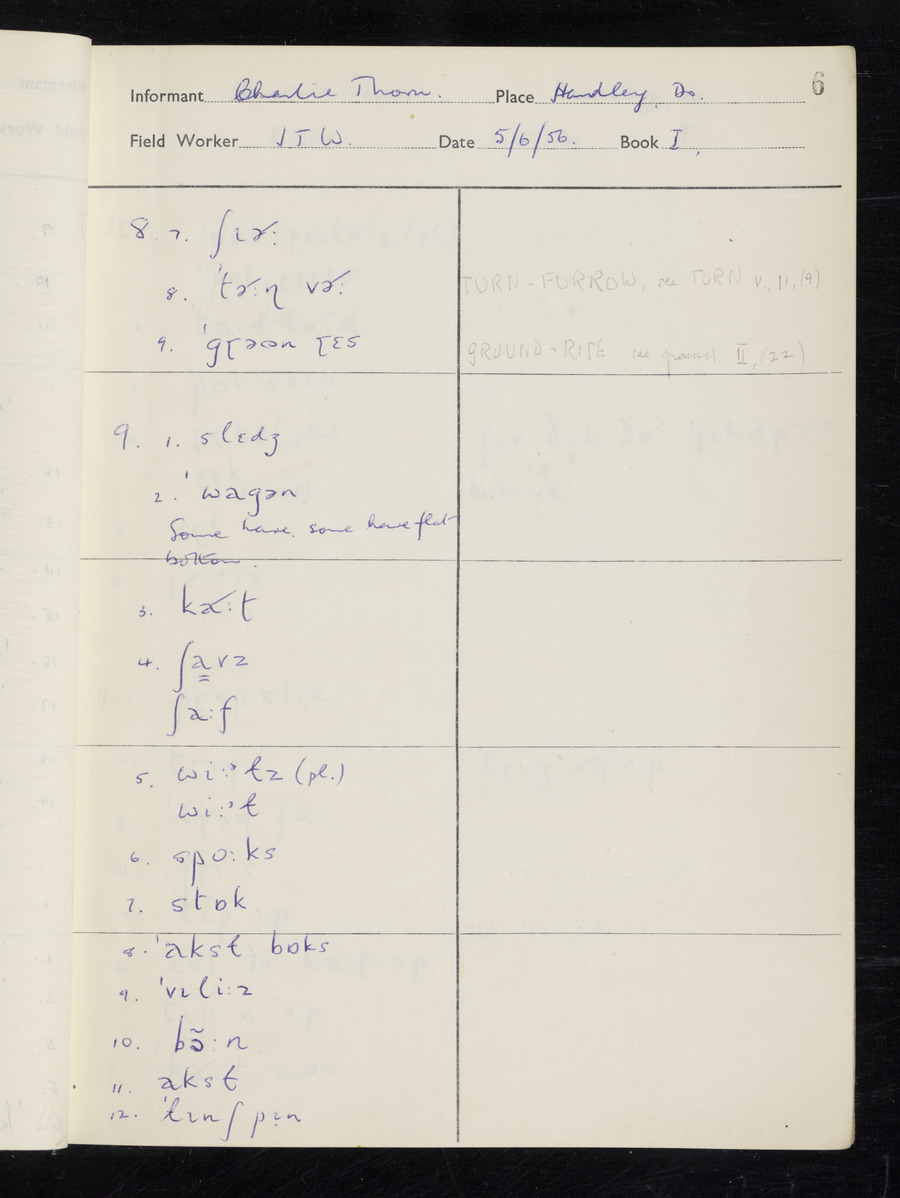 6
Informant Charlie Thorn. Place Handley, Do.
Field Worker J T W. Date 5/6/56. Book I.
8. 7. ʃɪɚ:
8. 'tɚ:ɳ vɚ:
TURN-FURROW, see TURN v., 11, (9)
9. 'gɽəʊn ɽɛs
GROUND-RISE see ground II, (22)
9. 1. slɛdʒ
2. 'wagən
Some have, some have flat
bottom.
3. kɚ:t
4. ʃavz
ʃa:f
5. wi:ᵊtz (pl.)
wi:ᵊt
6. spo:ks
7. stɒk
8. 'akst bɒks
9. 'vɪli:z
10. bɔ̃:n
11. akst
12. 'lɪnʃ pɪn